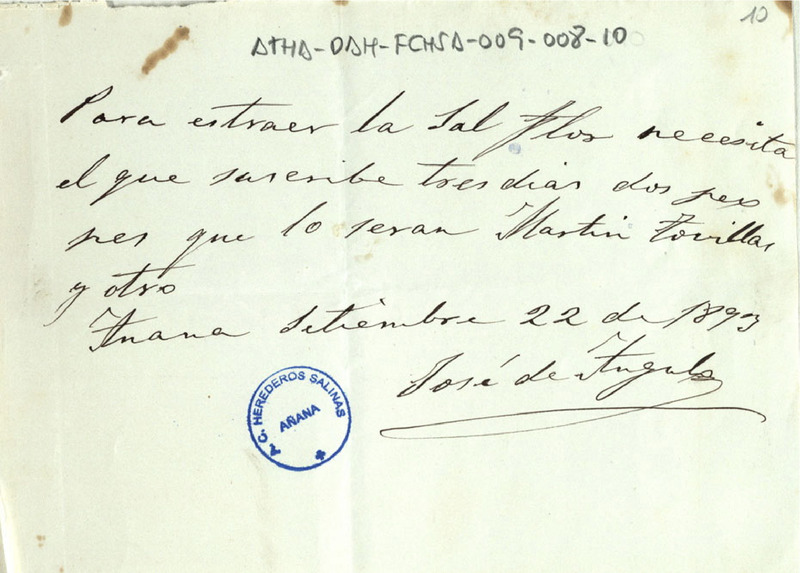 10
ATHA-DAH-FCHSA-009-008-10
Para estraer la Sal flor necesita
el que suscribe tres dias dos peo
nes que lo seran Martin Tovillas
y otro
Anana Setiembre 22 de 1893
José de Angulo
A. C. HEREDEROS SALINAS
AÑANA